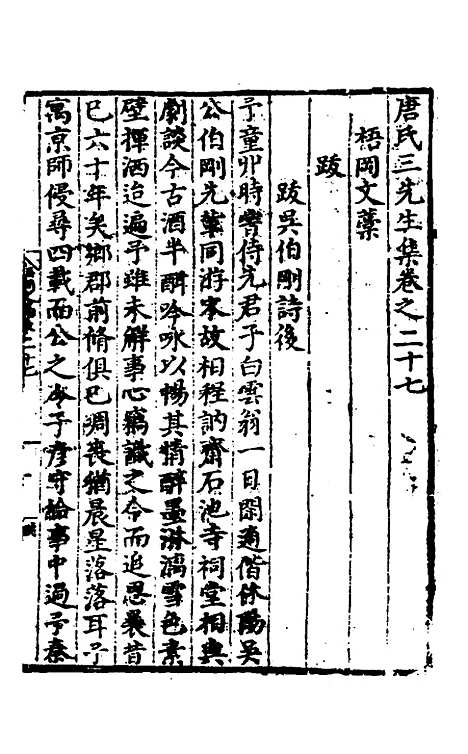 唐氏三先生集卷之二十七
梧岡文藁
跋
跋吳伯剛詩後
予童丱時嘗侍先君子白雲翁一日閑適偕休陽吳
公伯剛先輩同游宋故相程訥齋石池寺祠堂相與
劇談今古酒半酣吟咏以暢其情醉墨淋漓雪色素
壁揮洒迨遍予雖未解事心竊識之今而追思曩昔
巳六十年矣鄉郡前脩俱巳凋喪猶晨星落落耳予
寓京師侵尋四載而公之孫子彥守給事中過予泰